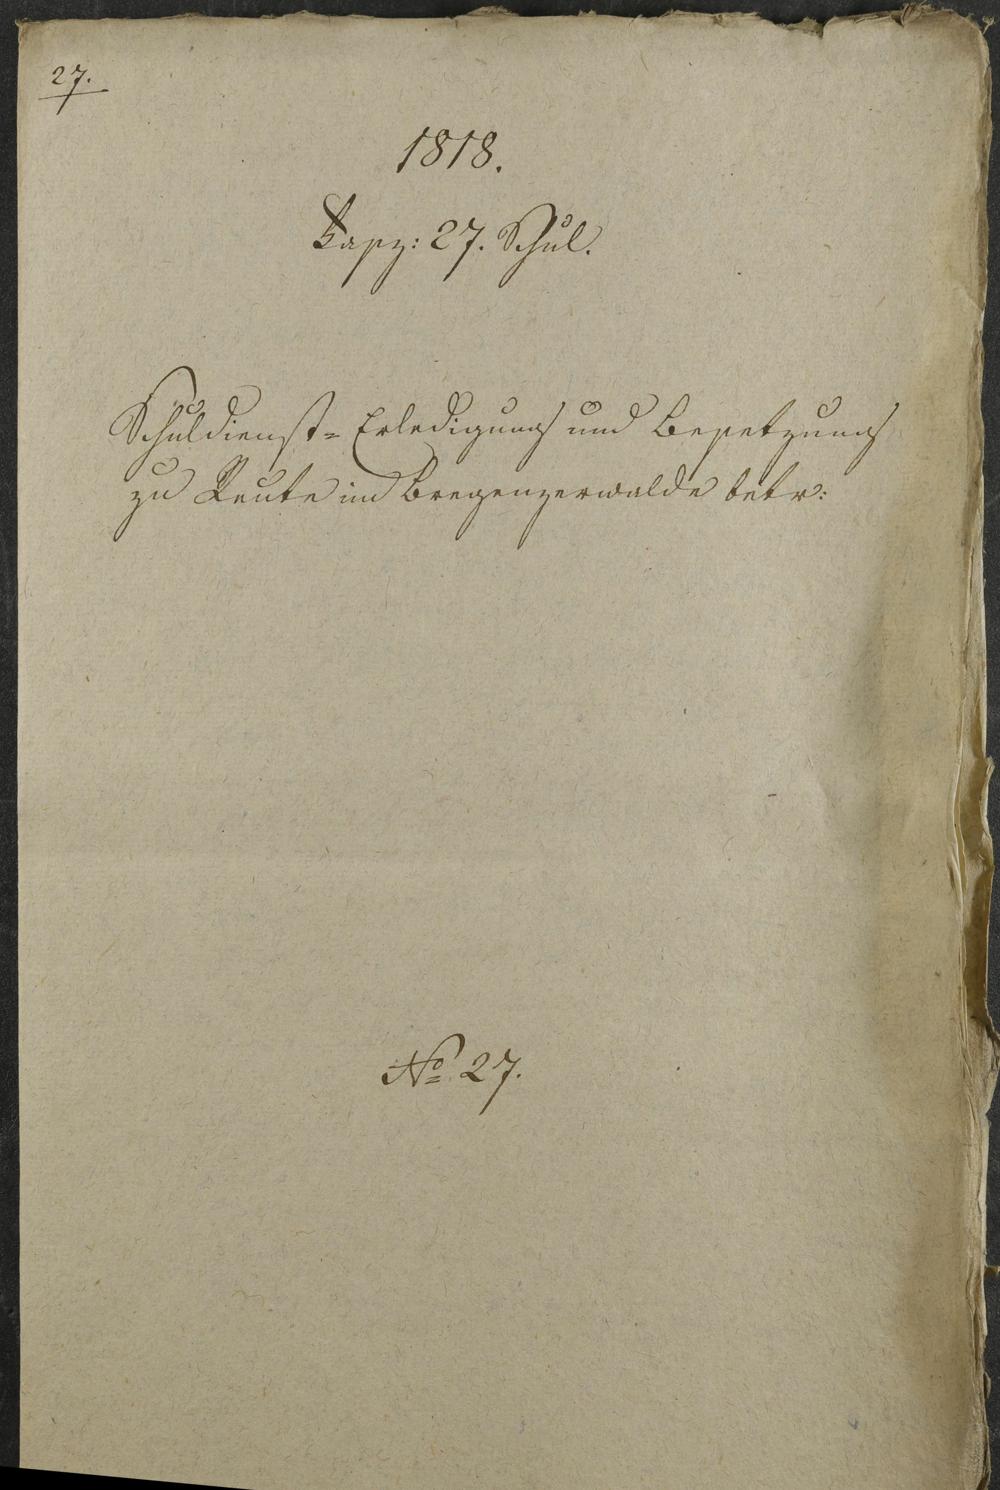 27.
1818.
Fasz: 27. Schul.
Schuldienst= Erledigung und Besetzung
zu Reute im Bregenzerwalde betr:
No. 27.